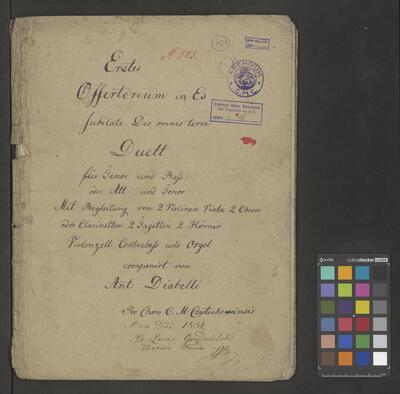 N. 503.
Erstes
Offertorium in Es
Jubilate Deo omnis terra
Duett
für Tenor und Bass
oder Alt und Tenor
Mit Begleitung von 2 Violinen Viola 2 Oboen
oder Clarinetten 2 Fagotten 2 Hörner
Violonzell Contrabass und Orgel
componirt von
Ant: Diabelli
Pro Choro C. M. Częstochoviensis
ARCHIVUM
C.M.C.
colorchecker CLASSIC